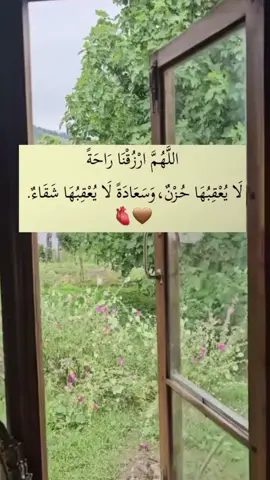 اللَّهُمَّ ارْزُقْنَا رَاحَةً
لَا يُعْقِبُهَا حُزْنٌ، وَسَعَادَةً لَا يُعْقِبُهَا شَقَاءٌ.
🫀🤎